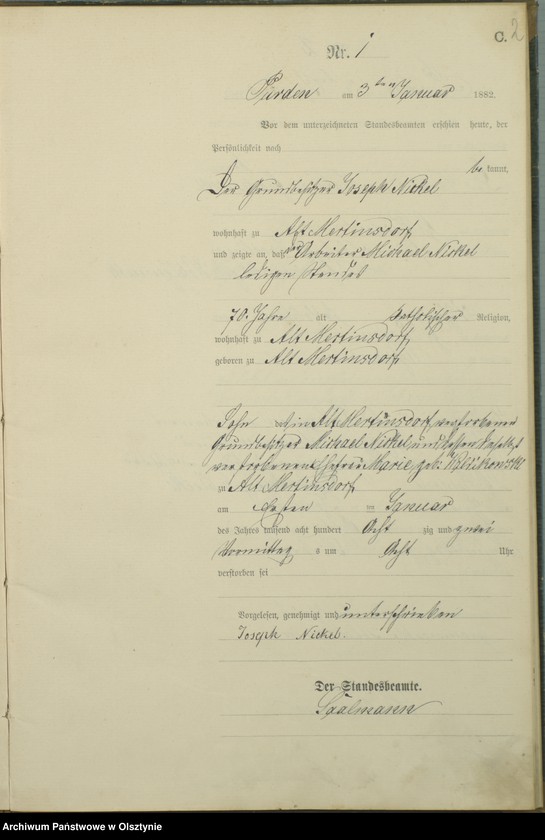 C. 2
Nr. 1
Purden am 3ten Januar 1882.
Vor dem unterzeichneten Standesbeamten erschien heute, der
Persönlichkeit nach
bekannt,
Der Grundbesitzer Joseph Nickel
wohnhaft zu Alt Mertinsdorf,
und zeigte an, daß der Arbeiter Michael Nickel
ledigen Standes
70 Jahre alt katholischer Religion,
wohnhaft zu Alt Mertinsdorf,
geboren zu Alt Mertinsdorf,
Sohn des in Alt Mertinsdorf verstorbenen
Grundbesitzer Michael Nickel und dessen daselbst
verstorbenen Ehefrau Marie geb.
zu Alt Mertinsdorf,
am ersten im Januar
des Jahres tausend acht hundert Acht zig und zwei
Vormittag s um Acht Uhr
verstorben sei
Vorgelesen, genehmigt und unterschrieben
Joseph Nickel.
Der Standesbeamte.
Saalmann
Archiwum Państwowe w Olsztynie